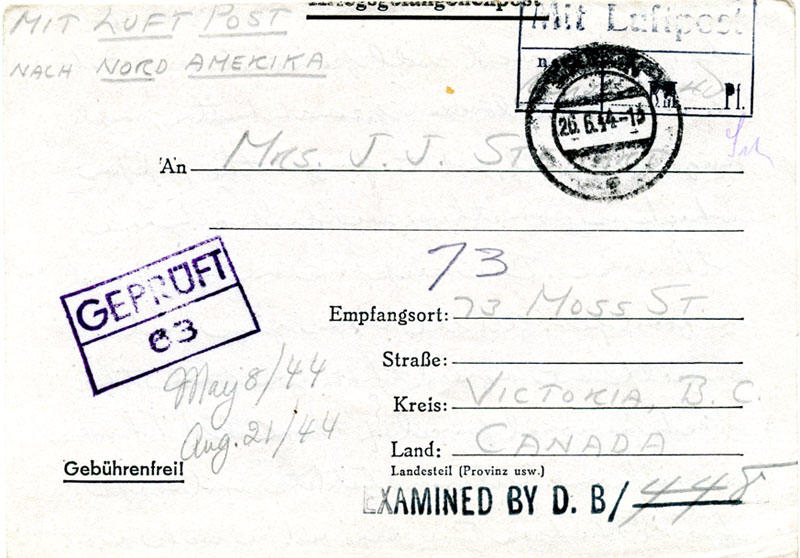 MIT LUFT POST
Kriegsgefangenenpost
NACH NORD AMERIKA
Mit Luftpost
Pf.
26.6.44-13
An MRS. J. J. ST
73
GEPRÜFT
63
Empfangsort: 73 MOSS ST.
Straße:
May 8/44
Kreis: VICTORIA, B. C.
Aug. 21/44
Land: CANADA
Gebührenfrei!
Landesteil (Provinz usw.)
EXAMINED BY D. B/ 448